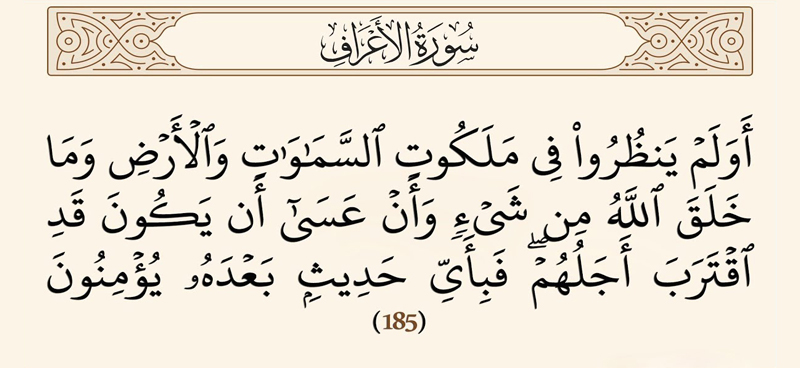 سُورَةُ الأَعْرَافِ
أَوَلَمۡ يَنظُرُواْ فِي مَلَكُوتِ ٱلسَّمَٰوَٰتِ وَٱلۡأَرۡضِ وَمَا
خَلَقَ ٱللَّهُ مِن شَيۡءٖ وَأَنۡ عَسَىٰٓ أَن يَكُونَ قَدِ
ٱقۡتَرَبَ أَجَلُهُمۡۖ فَبِأَيِّ حَدِيثِۭ بَعۡدَهُۥ يُؤۡمِنُونَ
(185)